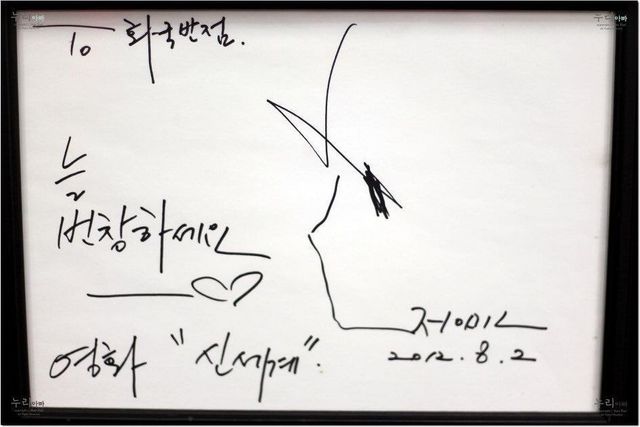 누리아빠 누리아빠
To 화국반점.
늘
번창하세요
정민
2012. 8. 2
영화 "신세계".
누리아빠 누리아빠